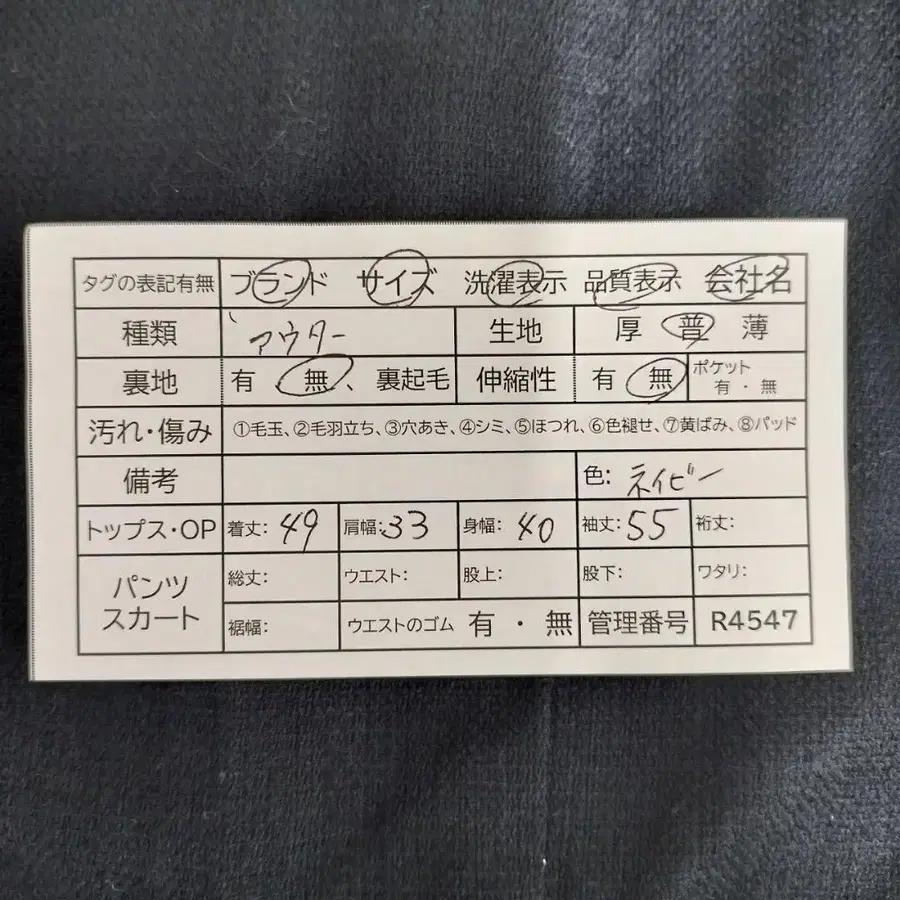 タグの表記有無 ブランド サイズ 洗濯表示 品質表示 会社名
種類 アウター 生地 厚 普 薄
裏地 有 無、裏起毛 伸縮性 有 無 ポケット 有・無
汚れ・傷み ①毛玉、②毛羽立ち、③穴あき、④シミ、⑤ほつれ、⑥色褪せ、⑦黄ばみ、⑧パッド
備考 色: ネイビー
トップス・OP 着丈: 49 肩幅: 33 身幅: 40 袖丈: 55 裄丈:
パンツ スカート 総丈: ウエスト: 股上: 股下: ワタリ:
裾幅: ウエストのゴム 有・無 管理番号 R4547